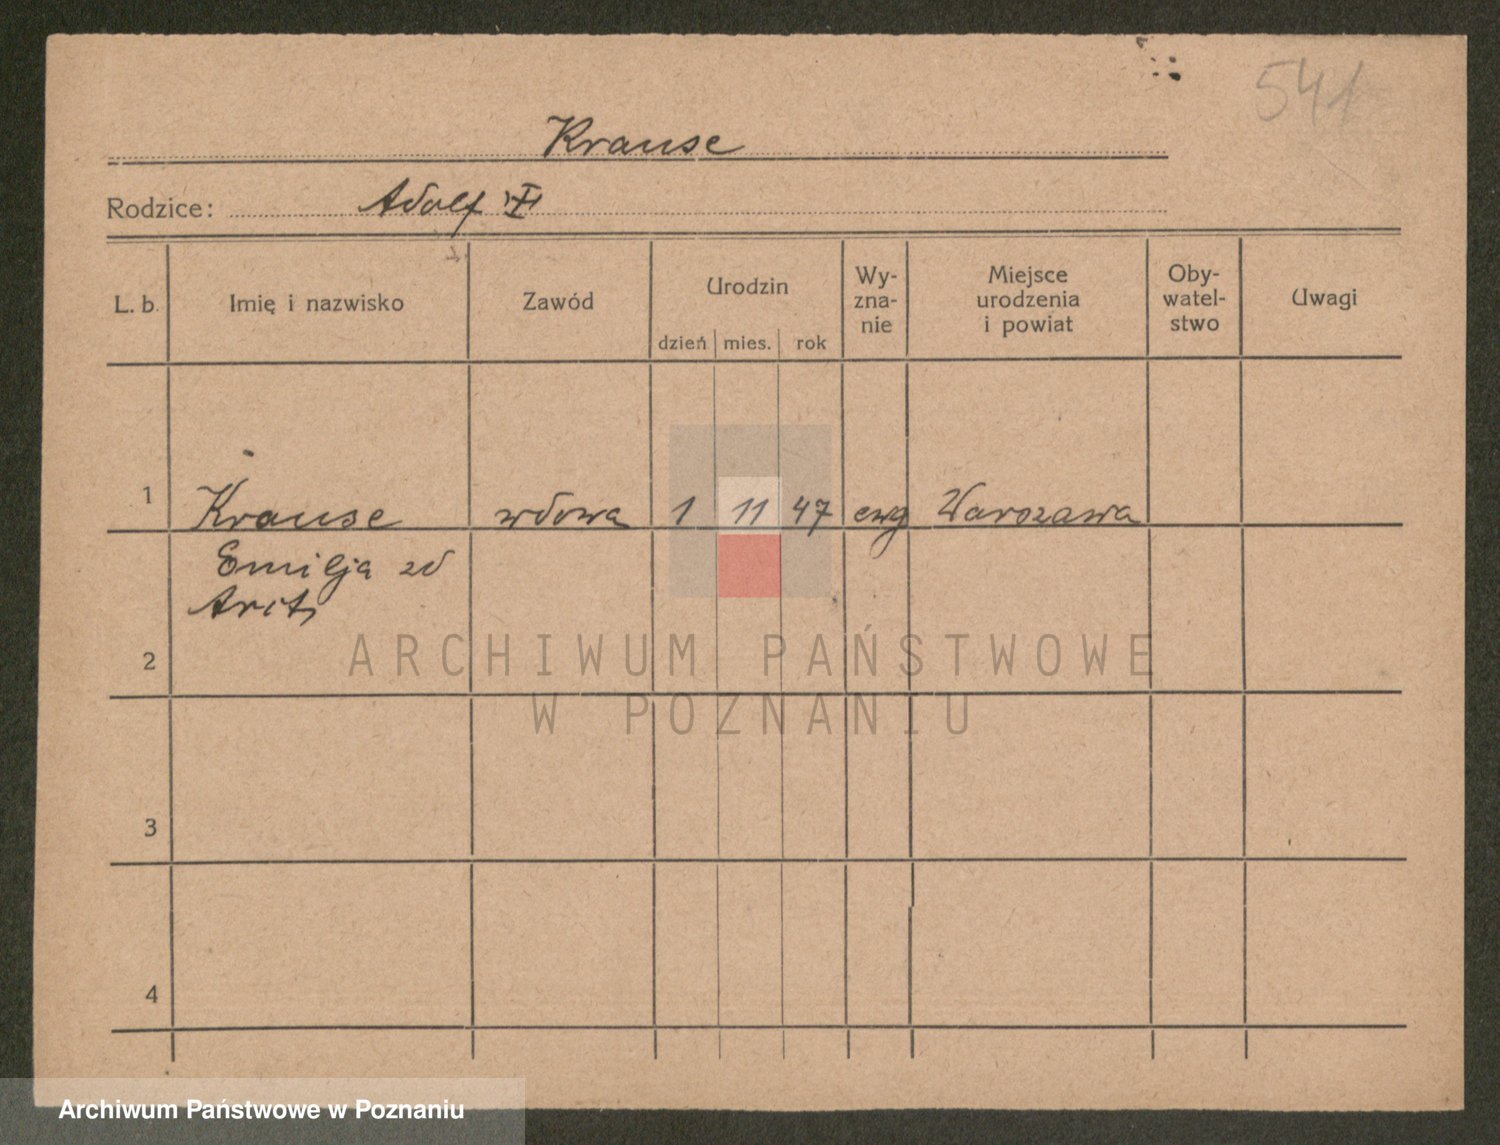 541
Krause
Rodzice: Adolf
L. b. Imię i nazwisko Zawód Urodzin dzień mies. rok Wy-zna-nie Miejsce urodzenia i powiat Oby-watel-stwo Uwagi
1 Krause wdowa 1 11 47 ewg Warszawa
Emilja zd
2
ARCHIWUM PAŃSTWOWE
W POZNANIU
3
4
Archiwum Państwowe w Poznaniu